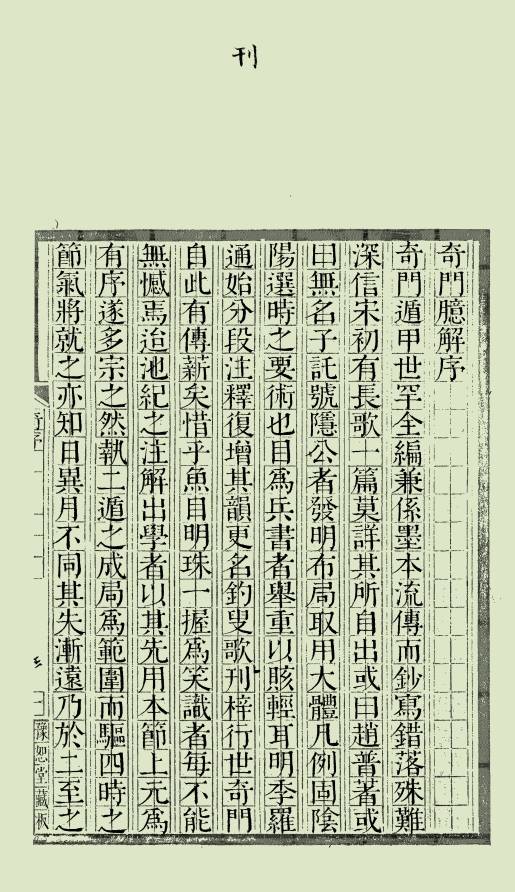 刊
奇門臆解序
奇門遁甲世罕全編兼係墨本流傳而鈔寫錯落殊難
深信宋初有長歌一篇莫詳其所自出或曰趙普著或
曰無名子託號隱公者發明布局取用大體凡例固陰
陽選時之要術也目爲兵書者舉重以賅輕耳明季羅
通始分段注釋復增其韻更名釣叟歌刊梓行世奇門
自此有傳薪矣惜乎魚目明珠一握爲笑識者每不能
無憾焉迨池紀之注解出學者以其先用本節上元爲
有序遂多宗之然執二遁之成局爲範圍而驅四時之
節氣將就之亦知日異月不同其失漸遠乃於二至之
豫恕堂藏板